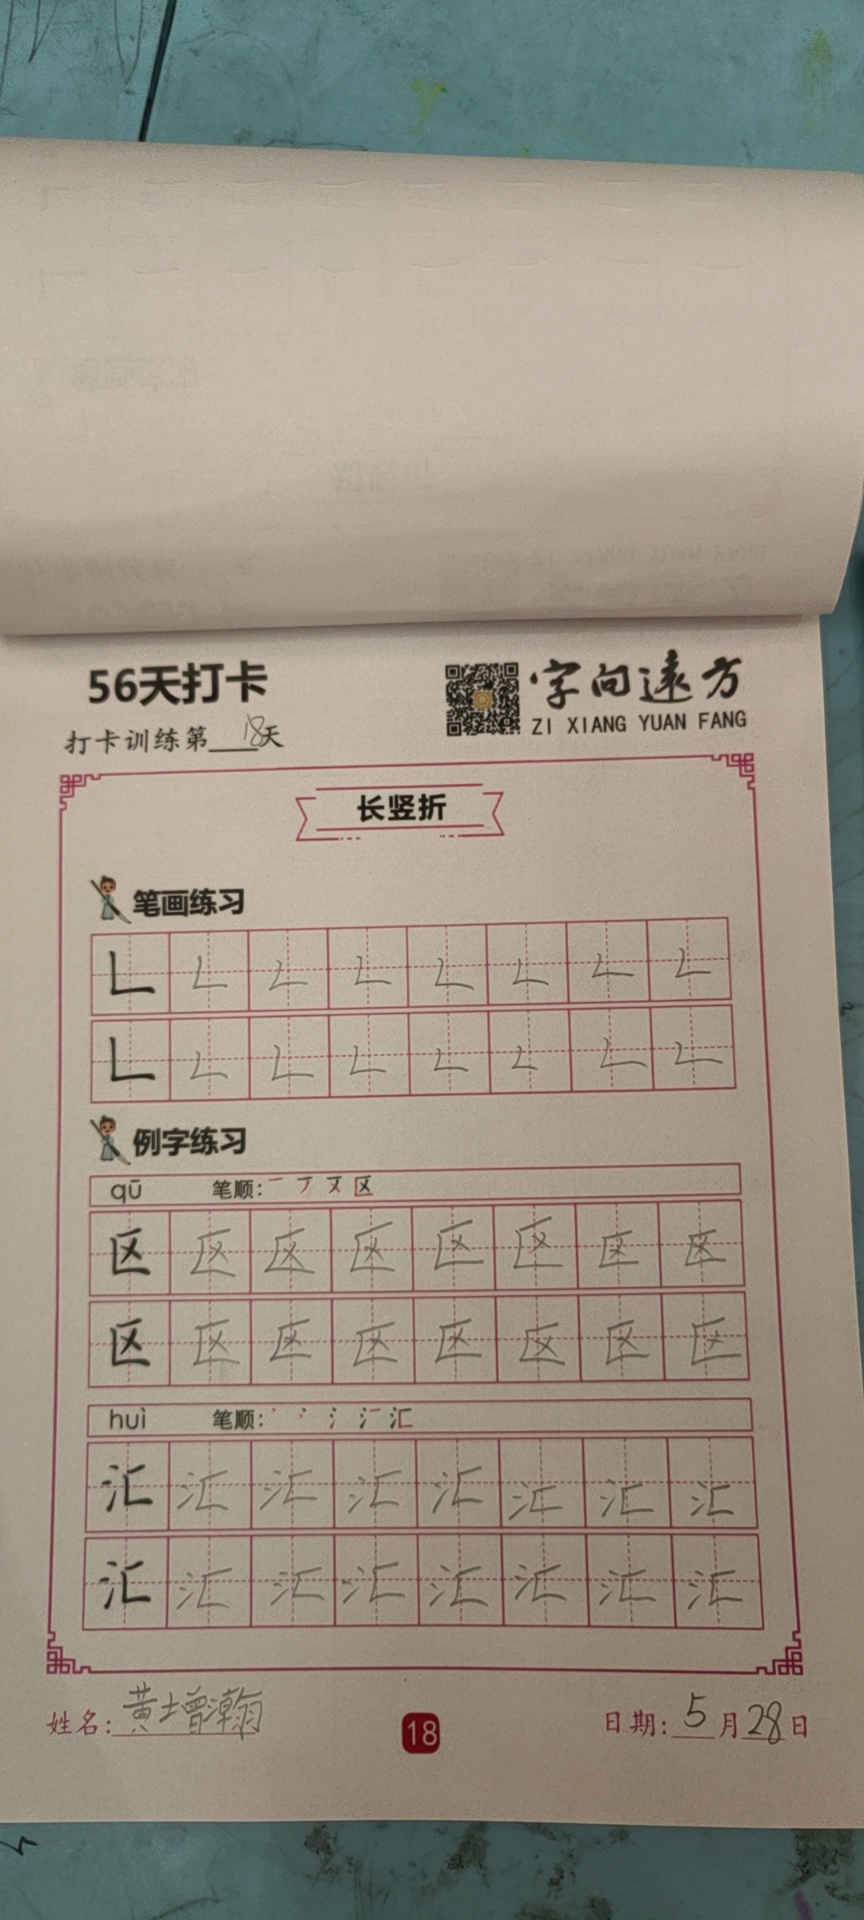 56天打卡
字向远方
ZI XIANG YUAN FANG
打卡训练第18天
长竖折
笔画练习
𠃊 𠃊 𠃊 𠃊 𠃊 𠃊 𠃊 𠃊
𠃊 𠃊 𠃊 𠃊 𠃊 𠃊 𠃊 𠃊
例字练习
qū 笔顺:
区 区 区 区 区 区 区 区
区 区 区 区 区 区 区 区
huì 笔顺:
汇 汇 汇 汇 汇 汇 汇 汇
汇 汇 汇 汇 汇 汇 汇 汇
姓名:黄增瀚
18
日期:5月28日